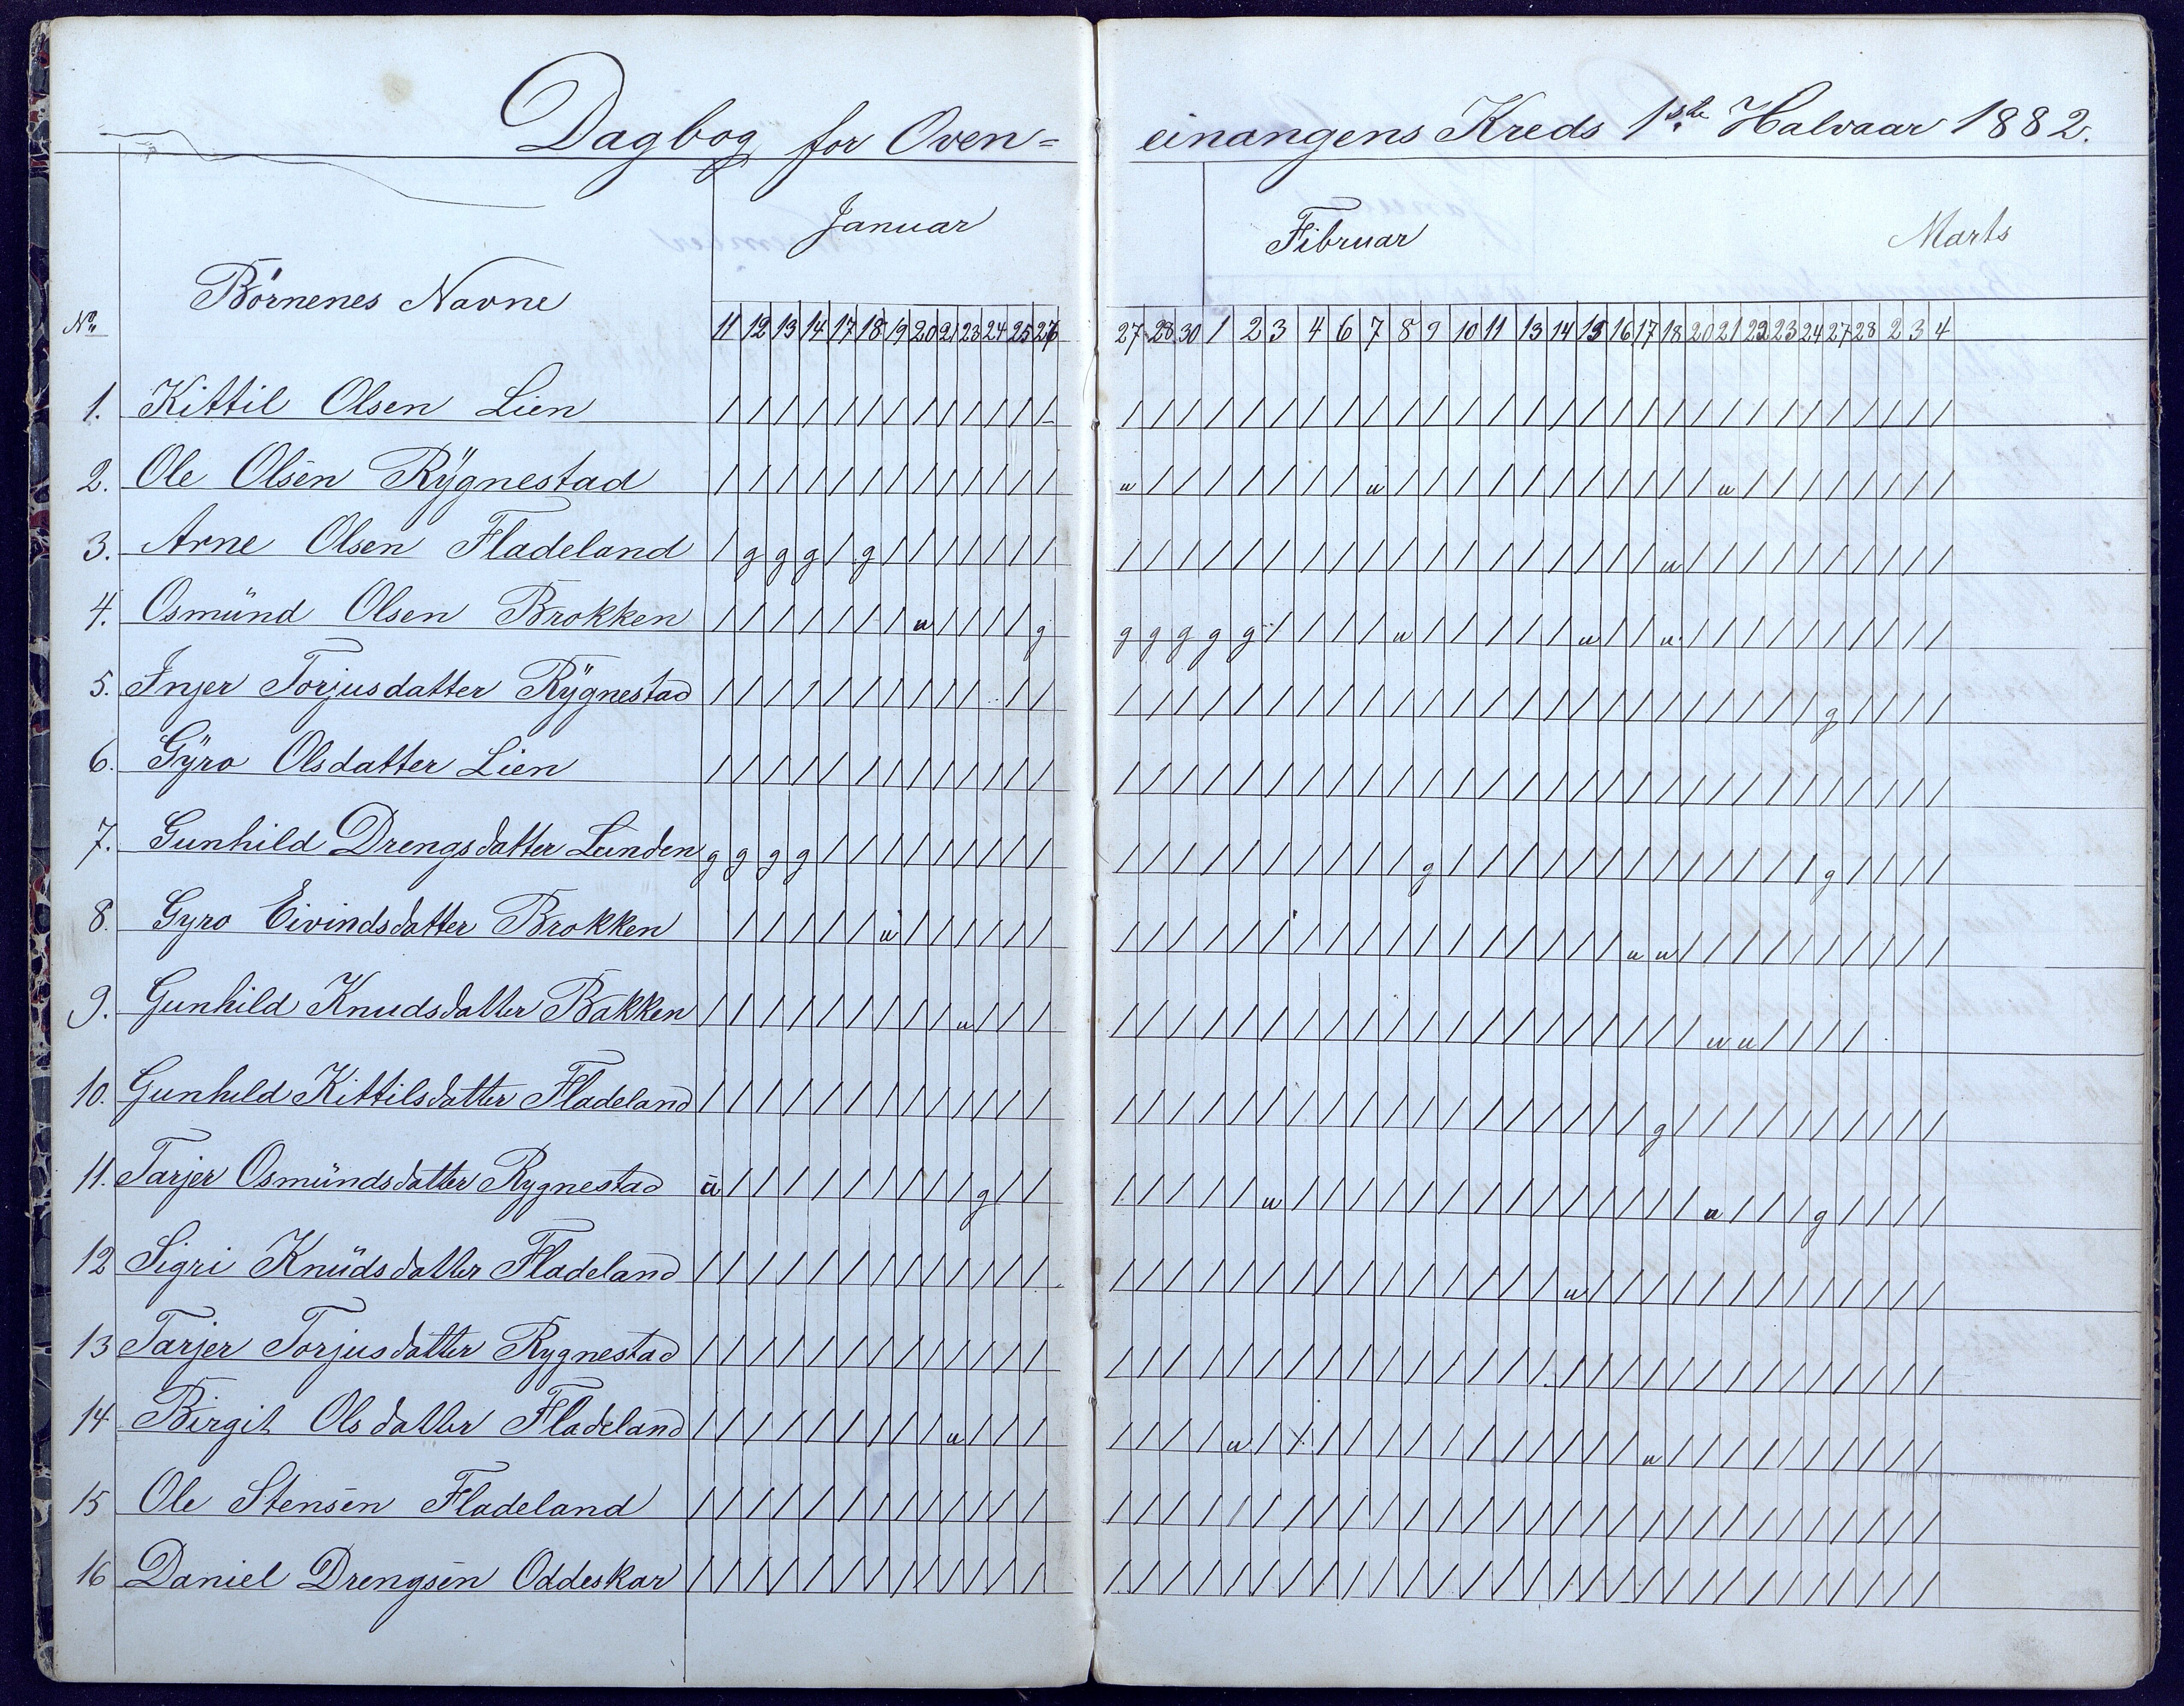 Dagbog for Oven-einangens Kreds 1ste Halvaar 1882.
Januar Fibruar Marts
No. Börnenes Navne
11 12 13 14 17 18 19 20 21 23 24 25 26 27 28 30 1 2 3 4 6 7 8 9 10 11 13 14 15 16 17 18 20 21 22 23 24 27 28 2 3 4
1. Kittil Olsen Lien / / / / / / / / / / / / / / / / / / / / / / / / / / / / / / / / / / / / / / / / / /
2. Ole Olsen Rÿgnestad / / / / / / / / / / / / / u / / / / / / / / u / / / / / / / / / / / u / / / / / / / /
3. Arne Olsen Fladeland / g g g / g / / / / / / / / / / / / / / / / / / / / / / / / / / u / / / / / / / / /
4. Osmünd Olsen Brokken / / / / / / / u / / / / g g g g g g / / / / u / / / / / u / / u / / / / / / / / /
5. Injer Torjusdatter Rÿgnestad / / / / / / / / / / / / / / / / / / / / / / / / / / / / / / / / / / / g / / / /
6. Gÿro Olsdatter Lien / / / / / / / / / / / / / / / / / / / / / / / / / / / / / / / / / / / / / / / / / /
7. Gunhild Drengsdatter Lunden g g g g / / / / / / / / / / / / / / / / / / / / g / / / / / / / / / / / / / g / / / /
8. Gyro Eivindsdatter Brokken / / / / / u / / / / / / / / / / / / / / / / / / / / / / / / u u / / / / / / / / / /
9. Gunhild Knudsdatter Bakken / / / / / / / / / u / / / / / / / / / / / / / / / / / / / / / / / / u u / / / /
10. Gunhild Kittilsdatter Fladeland / / / / / / / / / / / / / / / / / / / / / / / / / / / / / / / / g / / / / / / / / / /
11. Tarjer Osmündsdatter Rygnestad u / / / / / / / / / g / / / / / / / u / / / / / / / / / / / / / / / u / / / g / / / /
12 Sigri Knüdsdatter Fladeland / / / / / / / / / / / / / / / / / / / / / / / / / / / / / u / / / / / / / / / / / / /
13 Tarjer Torjusdatter Rygnestad / / / / / / / / / / / / / / / / / / / / / / / / / / / / / / / / / / / / / / / / / /
14 Birgit Olsdatter Fladeland / / / / / / / / / u / / / / / / / u / / / / / / / / / / / / / / u / / / / / / / / / /
15 Ole Stensen Fladeland / / / / / / / / / / / / / / / / / / / / / / / / / / / / / / / / / / / / / / / / / /
16 Daniel Drengsen Oddeskar / / / / / / / / / / / / / / / / / / / / / / / / / / / / / / / / / / / / / / / / / /